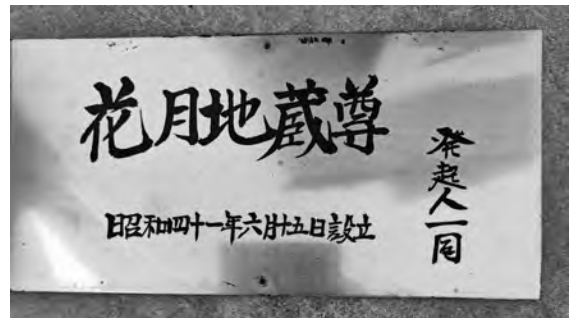 花月地蔵尊
昭和四十一年六月廿五日設立
発起人一同